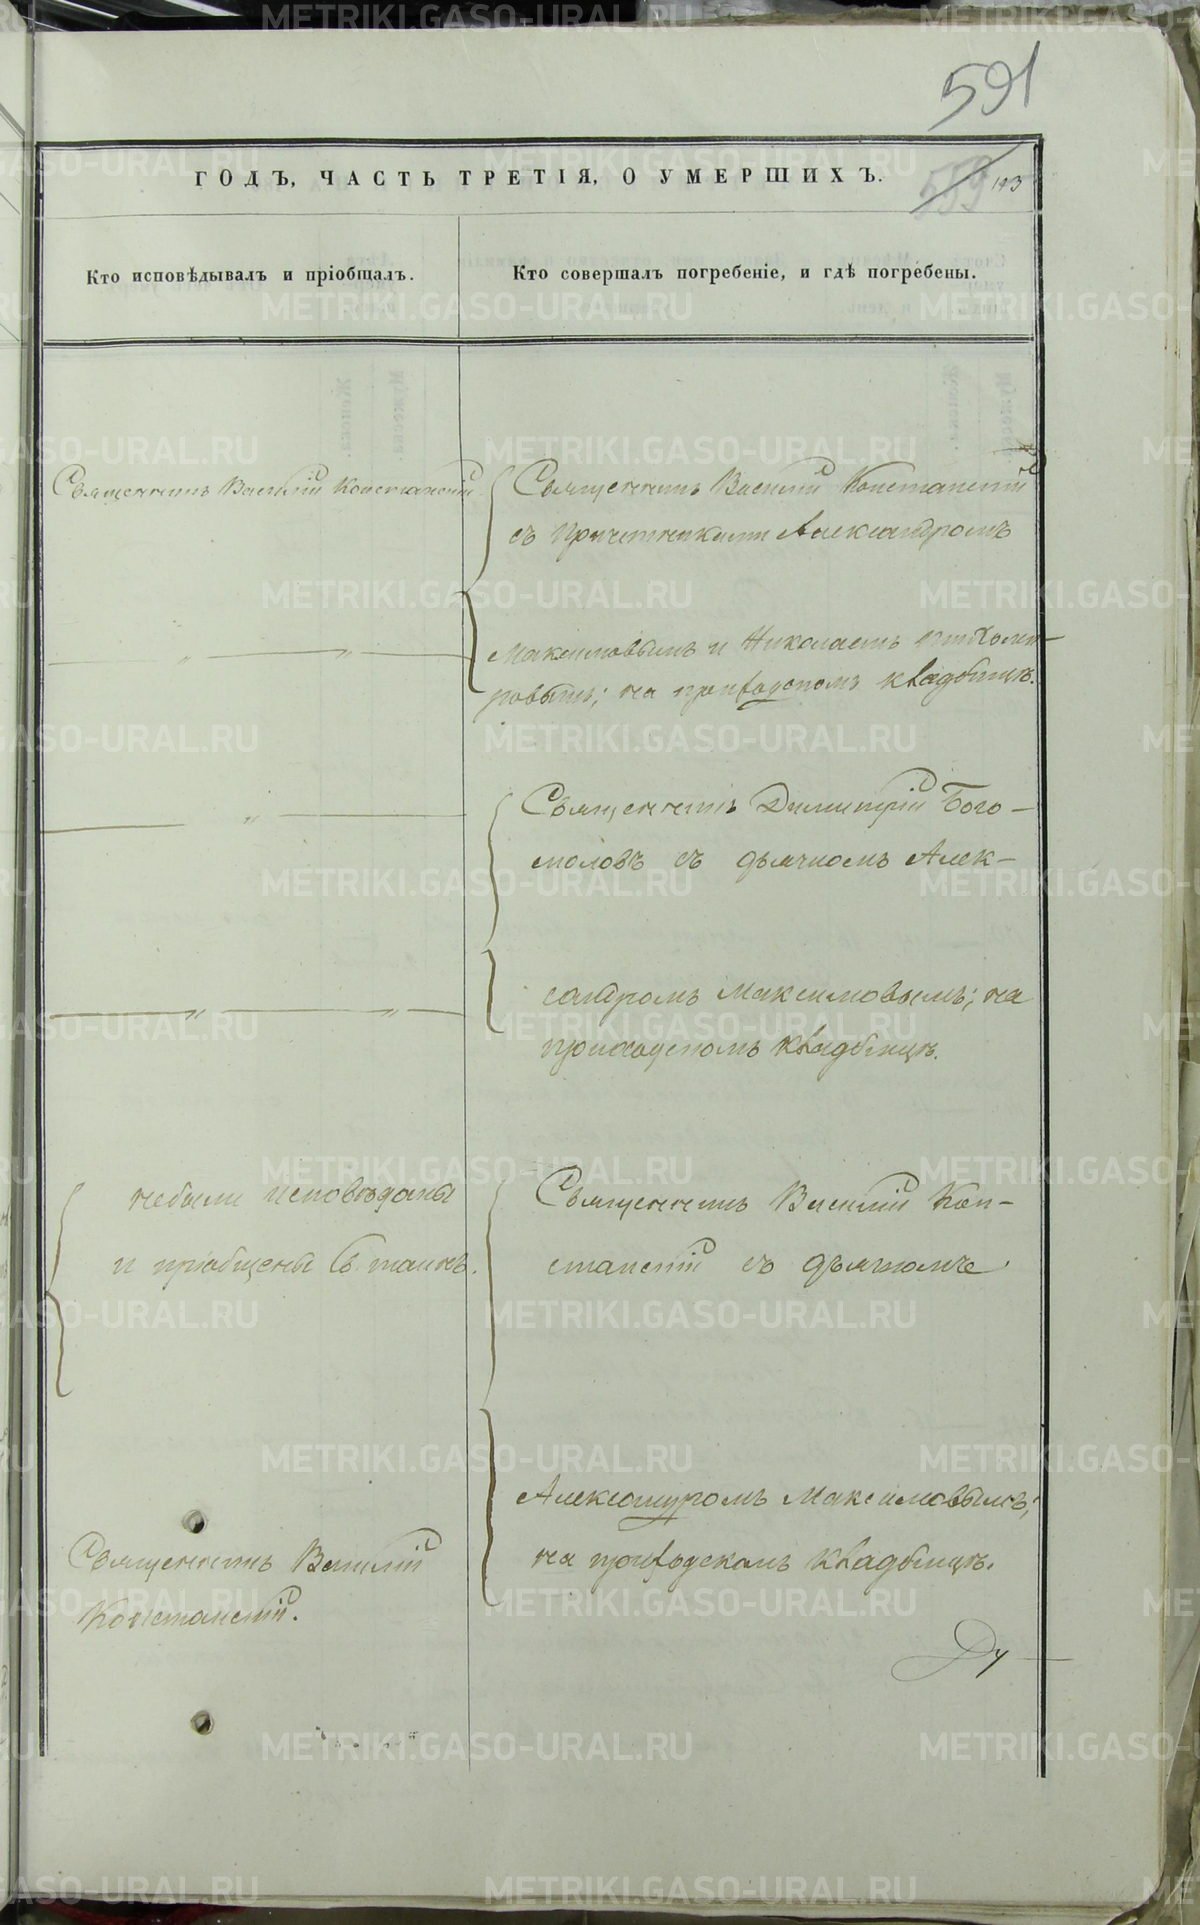 591
ГОДЪ, ЧАСТЬ ТРЕТІЯ, О УМЕРШИХЪ.
559 193
Кто исповѣдывалъ и пріобщалъ.
Кто совершалъ погребеніе, и гдѣ погребены.
Священникъ Василій Констанскій
Священникъ Василій Констанскій
съ причетниками Александромъ
Максимовымъ и Николаемъ
ровымъ; на приходскомъ кладбищѣ.
Священникъ Димитрій Бого-
моловъ съ дьячкомъ Алек-
сандромъ Максимовымъ; на
приходскомъ кладбищѣ.
небыли исповѣданы
и пріобщены Св. таинъ.
Священникъ Василій Кон-
станскій съ дьячкомъ
Александромъ Максимовымъ;
на приходскомъ кладбищѣ.
Священникъ Василій
Констанскій.
Ду
METRIKI.GASO-URAL.RU